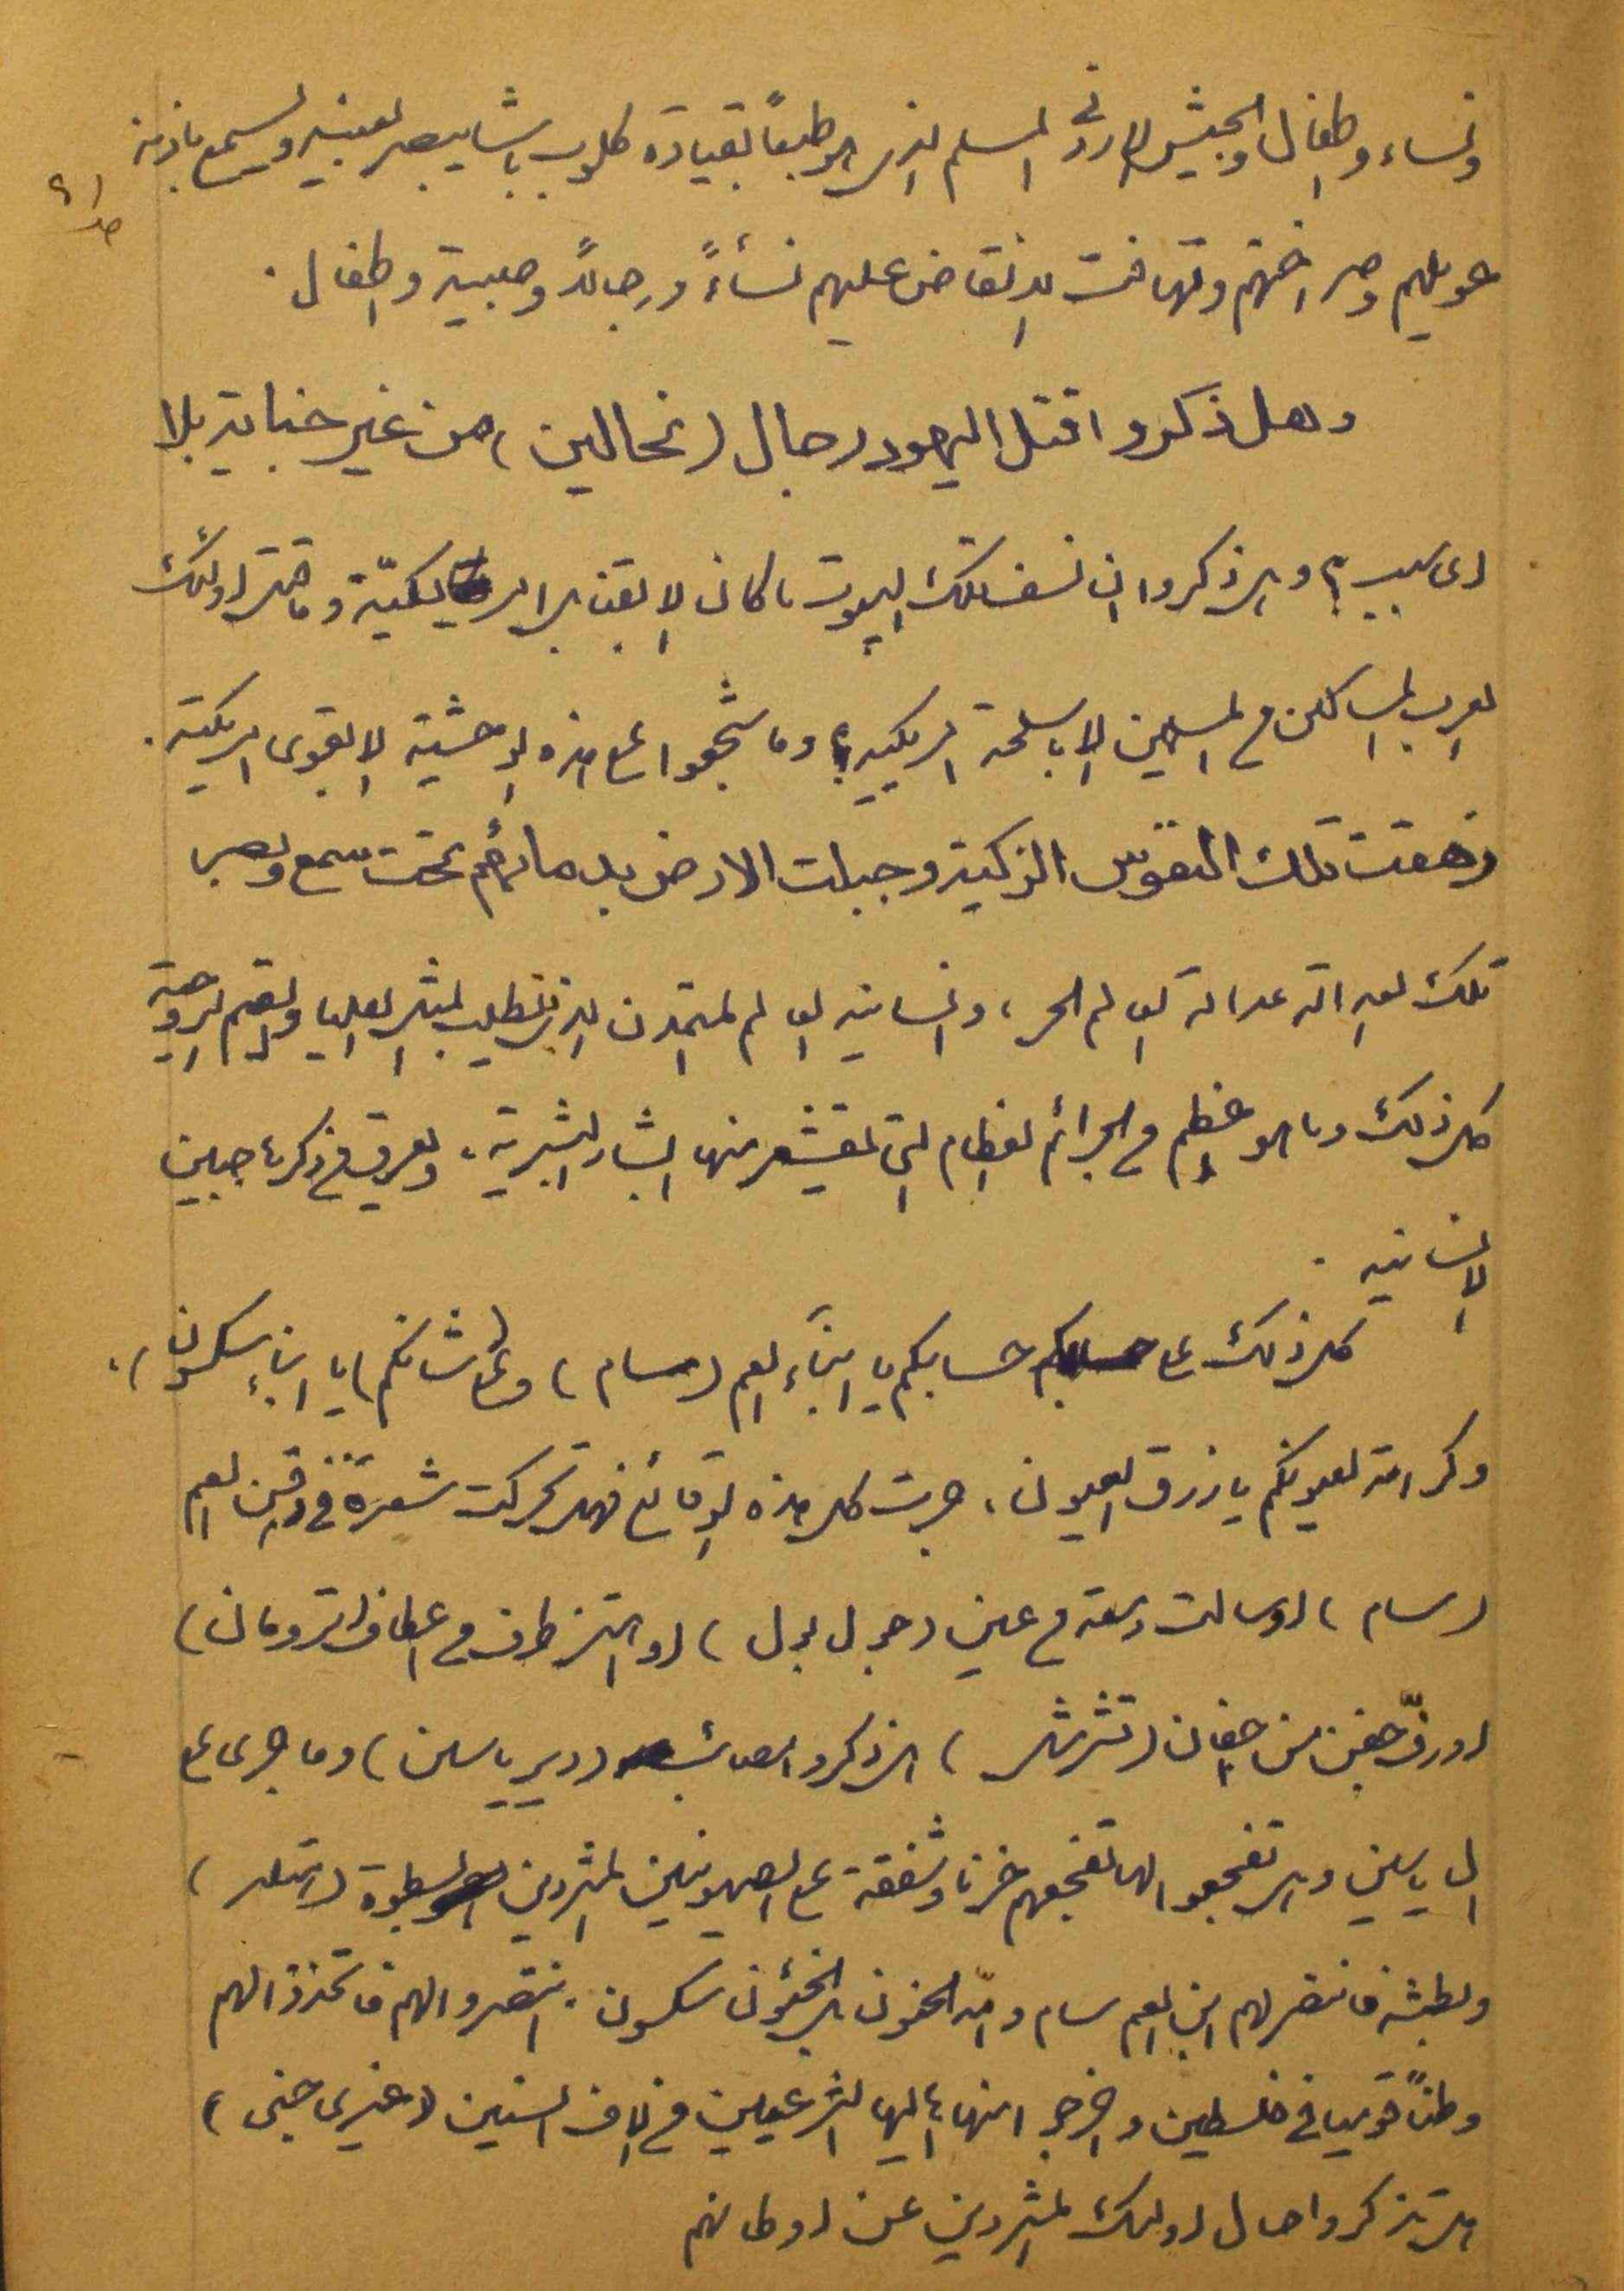 ونساء واطفال والجيش الاردني المسلم الذي هو طبعاً بقيادة كلوب باشا يبصر بعينيه ويسمع باذنه
عويلهم وصراختهم وتهافت الانقاض عليهم نساءً ورجالاً وصبية واطفال.
وهل ذكروا قتل اليهود رجال (نحالين) من غير جناية بلا
اى سبب؟ وهل ذكروا ان نسف تلك البيوت ما كان الا بقنابل امريكيّة وما قتل اولئك
العرب المساكين من المسلمين الا باسلحة امريكية؟ وما شجعوا على هذه الوحشية الا بقوى امريكية.
زهقت تلك النفوس الزكية وجبلت الارض بدمائهم تحت سمع وبصر
تلك العدالة عدالة العالم الحر، وانسانية العالم المتمدن الذي تتطلب المثل العليا والقيم الروحية
كل ذلك وما هو اعظم من الجرائم العظام التي تقشعر منها البشار البشرية، ويعرق من ذكرها جبين
الانسانية.
كل ذلك على حسابكم يا ابناء العم (سام) وعلى شانكم يا ابناء سكسون)،
وكرامة لعيونكم يا زرق العيون، جرت كل هذه الوقائع فهل تحركت شعرة في ذقن العم
(سام) او سالت دمعة من عين (جول بول) او اهتز طرف من اعطاف (ترومان)
او رفّ جفن من اجفان (تشرشل) هل ذكروا مصائب (دير ياسين) وما جرى على
ال ياسين وهل تفجعوا لها تفجعهم حزنا وشفقة على الصهيونيين المشردين لسطوة (هتلر)
وبطشه فانتصر لهم ابن العم سام وامّه الحنون الخئون سكسون. انتصروا لهم فاتخذوا لهم
وطناً قوميا في فلسطين واخرجوا منها اهاليها الشرعيين من الاف السنين (غيري جنى)
هل تذكروا حال اولئك المشردين عن اوطانهم